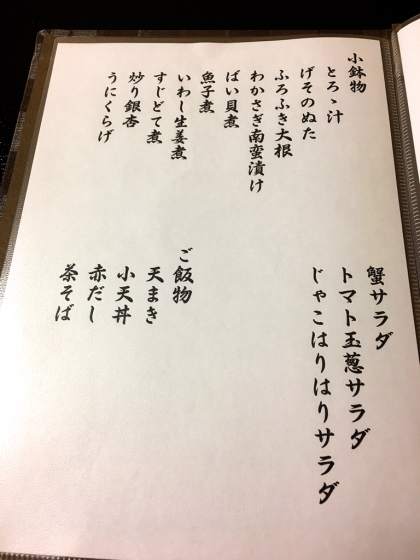 小鉢物
とろゝ汁
げそのぬた
ふろふき大根
わかさぎ南蛮漬け
ばい貝煮
魚子煮
いわし生姜煮
すじどて煮
炒り銀杏
うにくらげ
蟹サラダ
トマト玉葱サラダ
じゃこはりはりサラダ
ご飯物
天まき
小天丼
赤だし
茶そば